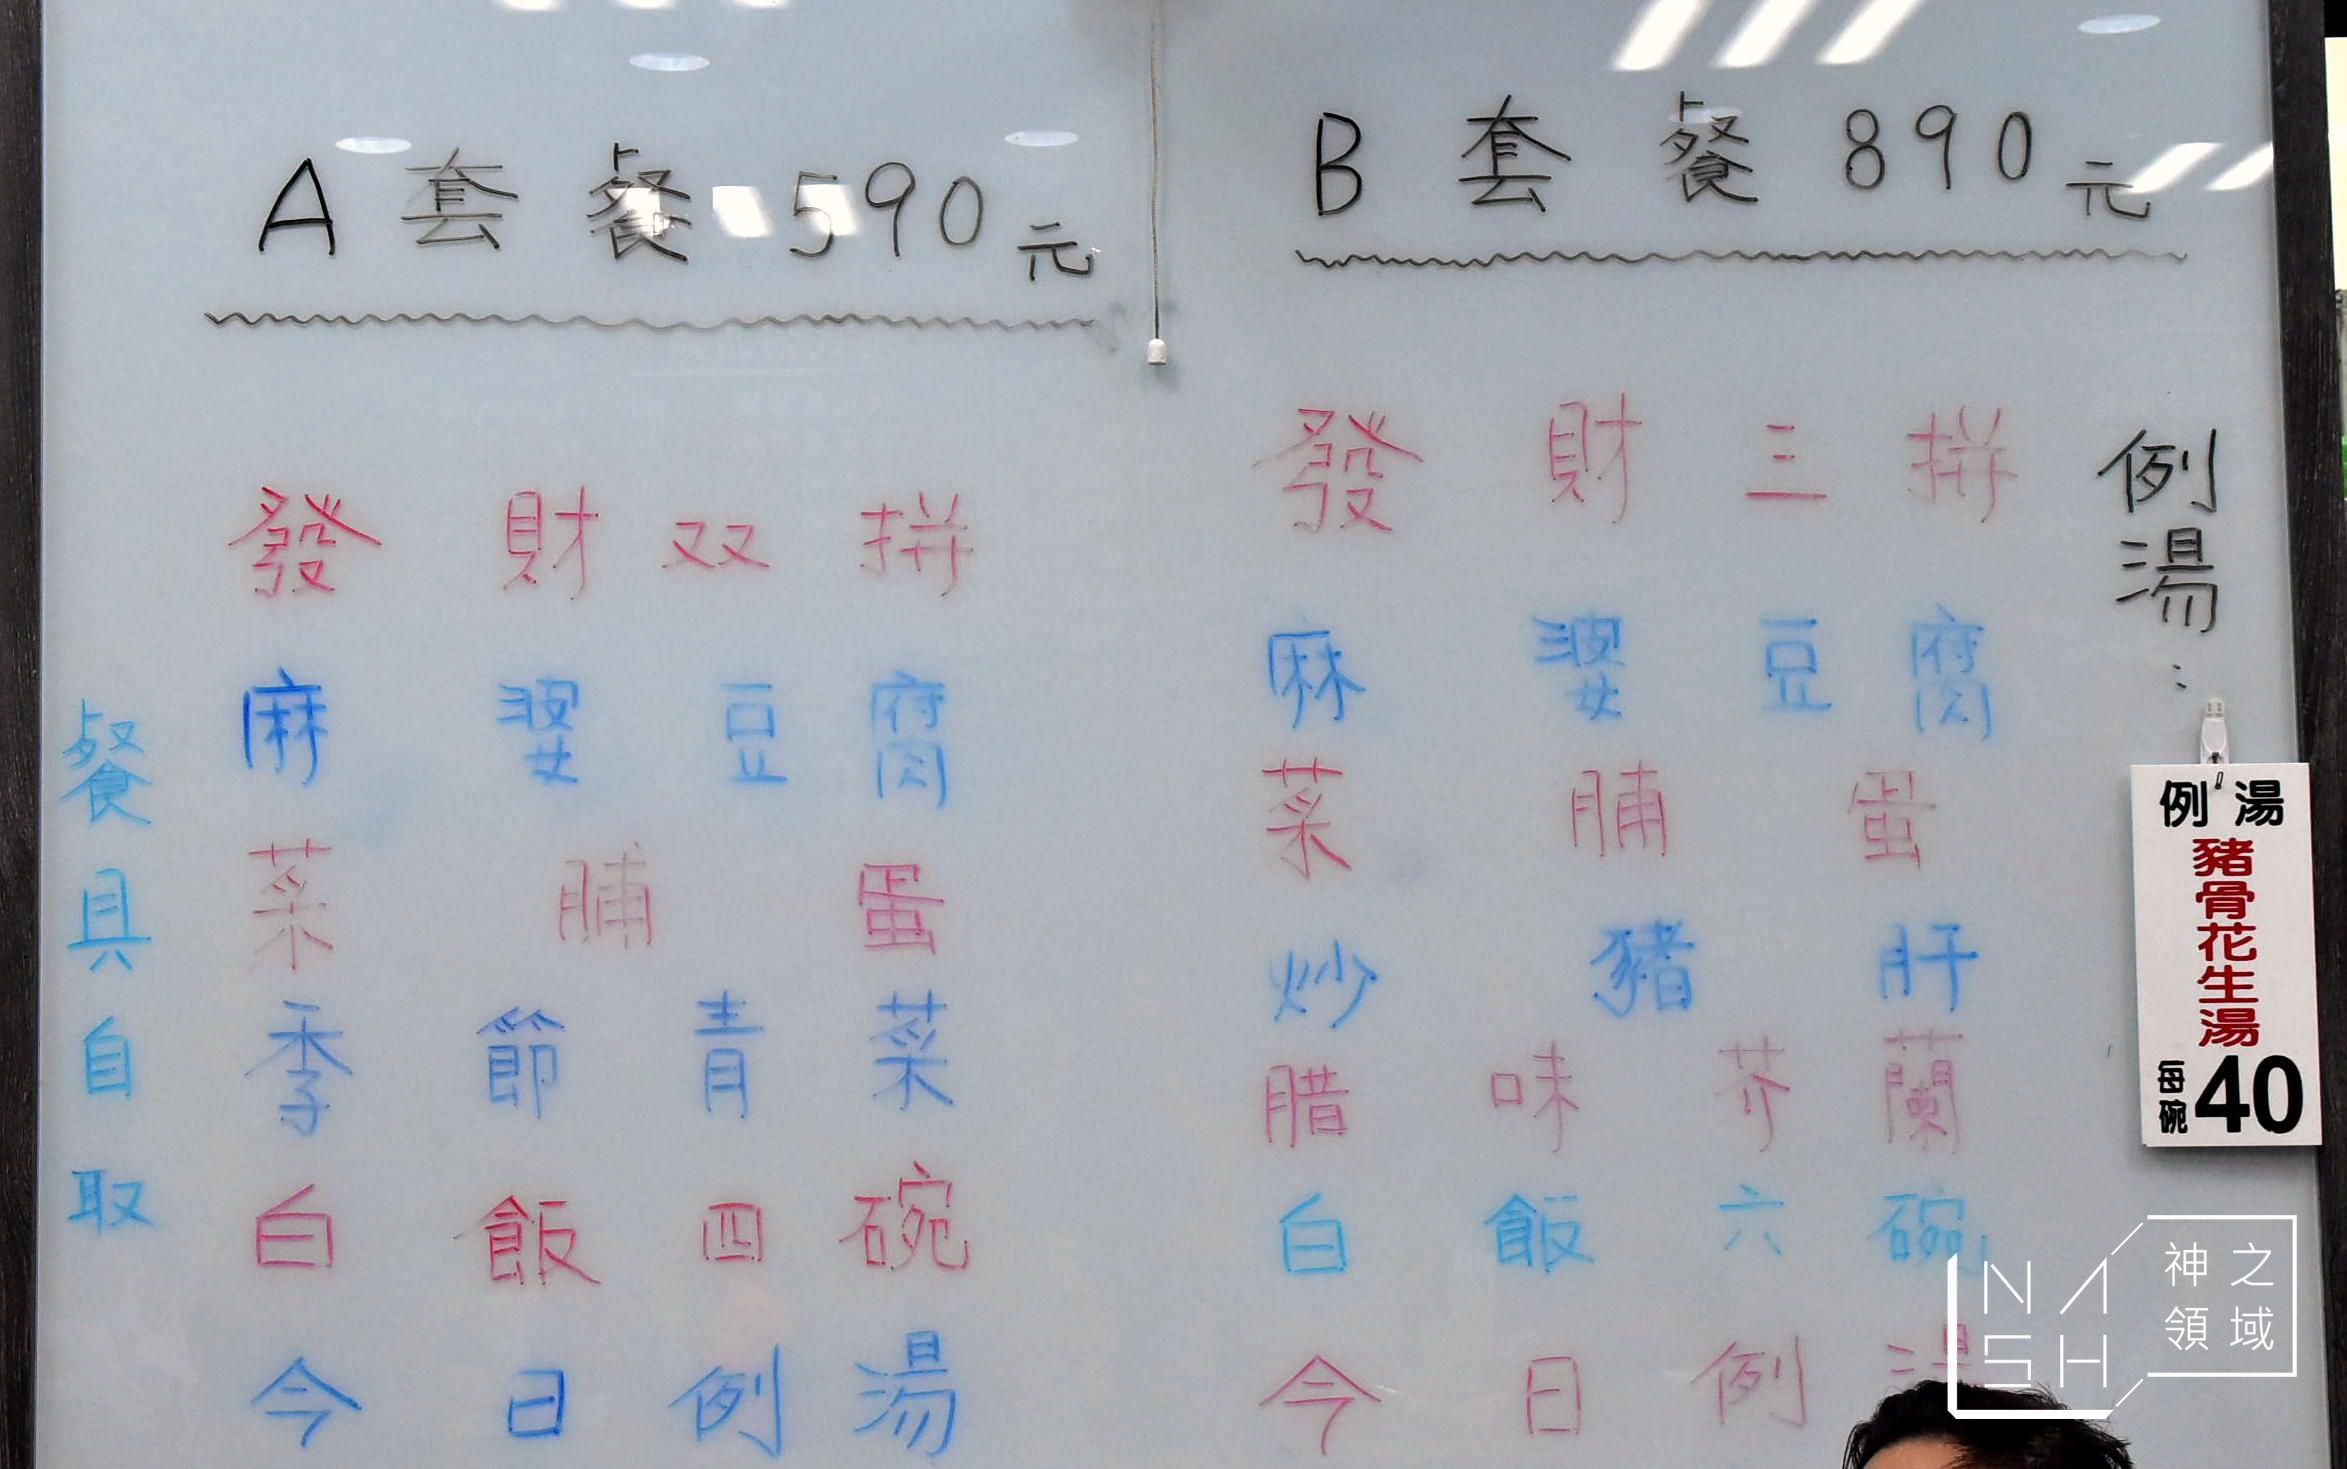 A套餐 590元
發財双拼
麻婆豆腐
菜脯蛋
季節青菜
白飯四碗
今日例湯
餐具自取
B套餐 890元
發財三拼
麻婆豆腐
菜脯蛋
炒豬肝
腊味芥蘭
白飯六碗
今日例湯
例湯：
例湯
豬骨花生湯
每碗40
NASH
神之
領域